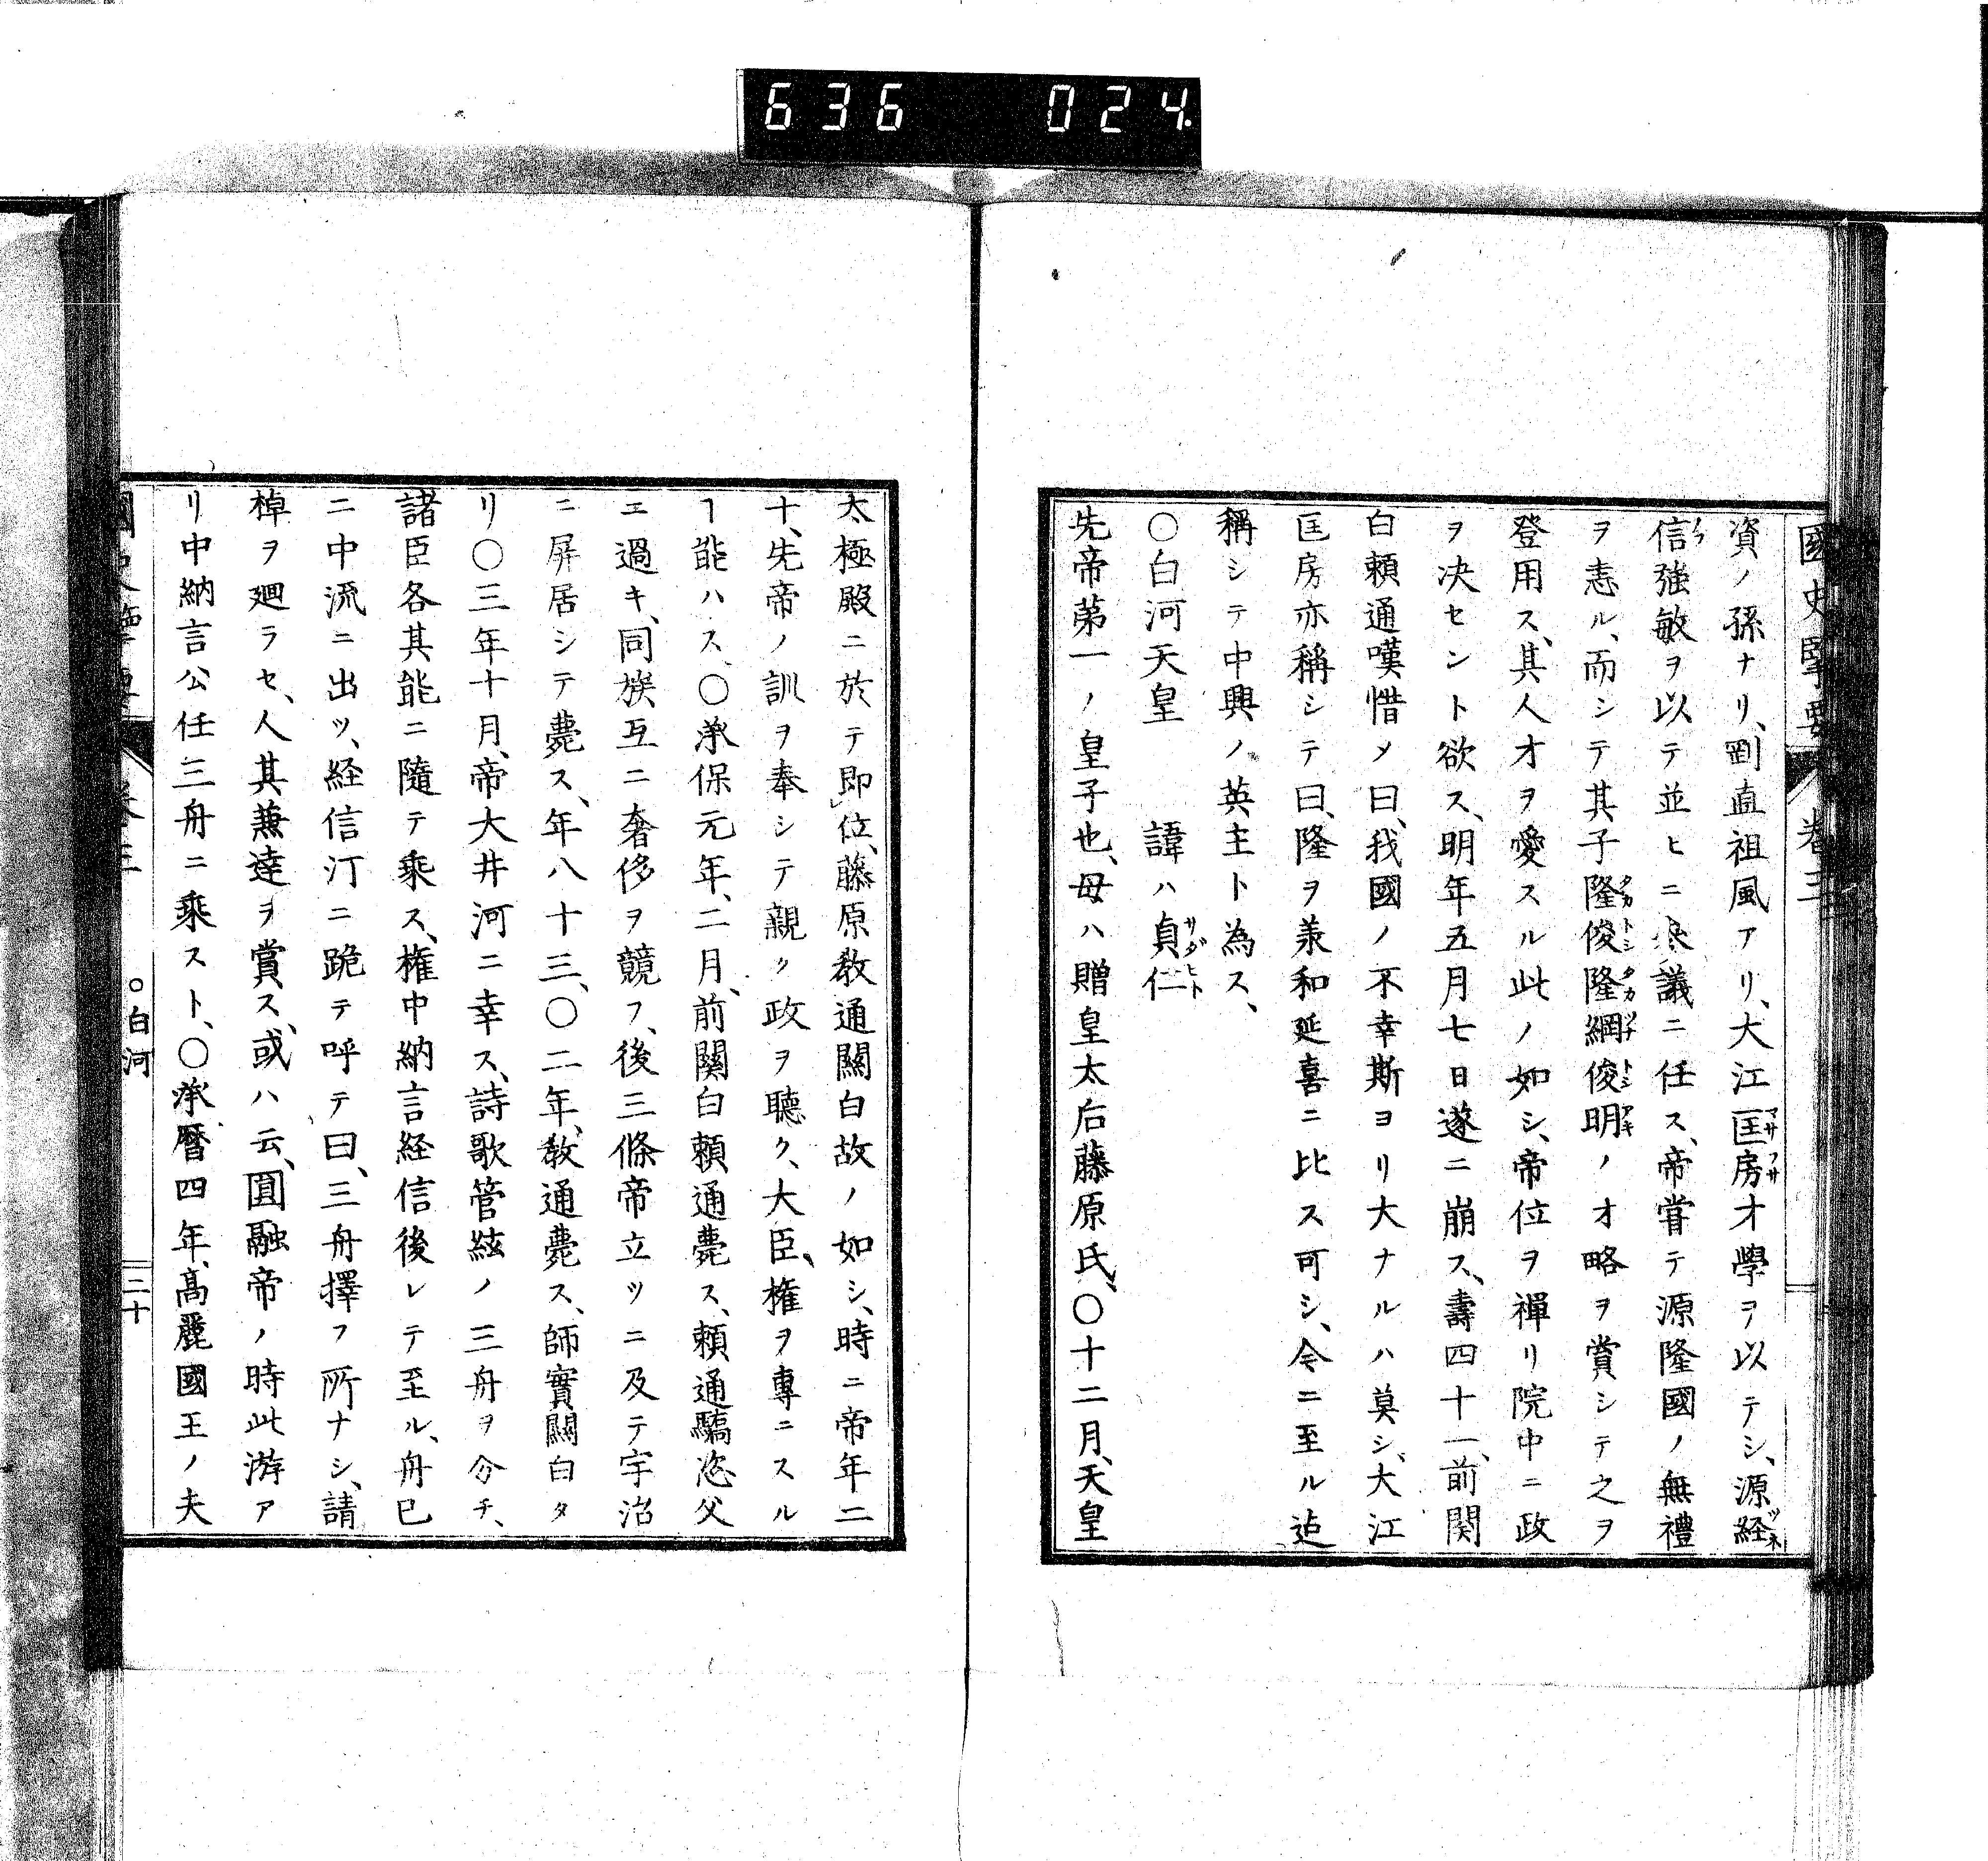 636 024
國史擥要 卷三
資ノ孫ナリ、剛直祖風アリ、大江匡房才學ヲ以テシ、源経
信強敏ヲ以テ並ヒニ参議ニ任ス、帝嘗テ源隆國ノ無禮
ヲ恚ル、而シテ其子隆俊隆綱俊明ノオ略ヲ賞シテ之ヲ
登用ス、其人オヲ愛スル此ノ如シ、帝位ヲ禪リ院中ニ政
ヲ决セント欲ス、明年五月七日遂ニ崩ス、壽四十一、前関
白頼通嘆惜メ曰、我國ノ不幸斯ヨリ大ナルハ莫シ、大江
匡房亦稱シテ曰、隆ヲ美和延喜ニ比ス可シ、今ニ至ル迠
稱シテ中興ノ英主ト為ス、
〇白河天皇 諱ハ貞仁
先帝第一ノ皇子也、母ハ贈皇太后藤原氏、〇十二月、天皇
太極殿ニ於テ即位、藤原敎通關白故ノ如シ、時ニ帝年二
十、先帝ノ訓ヲ奉シテ親ク政ヲ聽ク、大臣、權ヲ專ニスル
ヿ能ハス、〇承保元年、二月、前關白頼通薨ス、頼通驕恣父
ニ過キ、同族互ニ奢侈ヲ競フ、後三條帝立ツニ及テ宇治
ニ屏居シテ薨ス、年八十三、〇二年、敎通薨ス、師實關白タ
リ〇三年十月、帝大井河ニ幸ス、詩歌管絃ノ三舟ヲ分チ、
諸臣各其能ニ隨テ乘ス、權中納言経信後レテ至ル、舟已
ニ中流ニ出ツ、経信汀ニ跪テ呼テ曰、三舟擇フ所ナシ、請
棹ヲ廻ラセ、人其兼達ヲ賞ス、或ハ云、圓融帝ノ時此游ア
リ中納言公任三舟ニ乘スト、〇承曆四年、高麗國王ノ夫
〇白河 二十